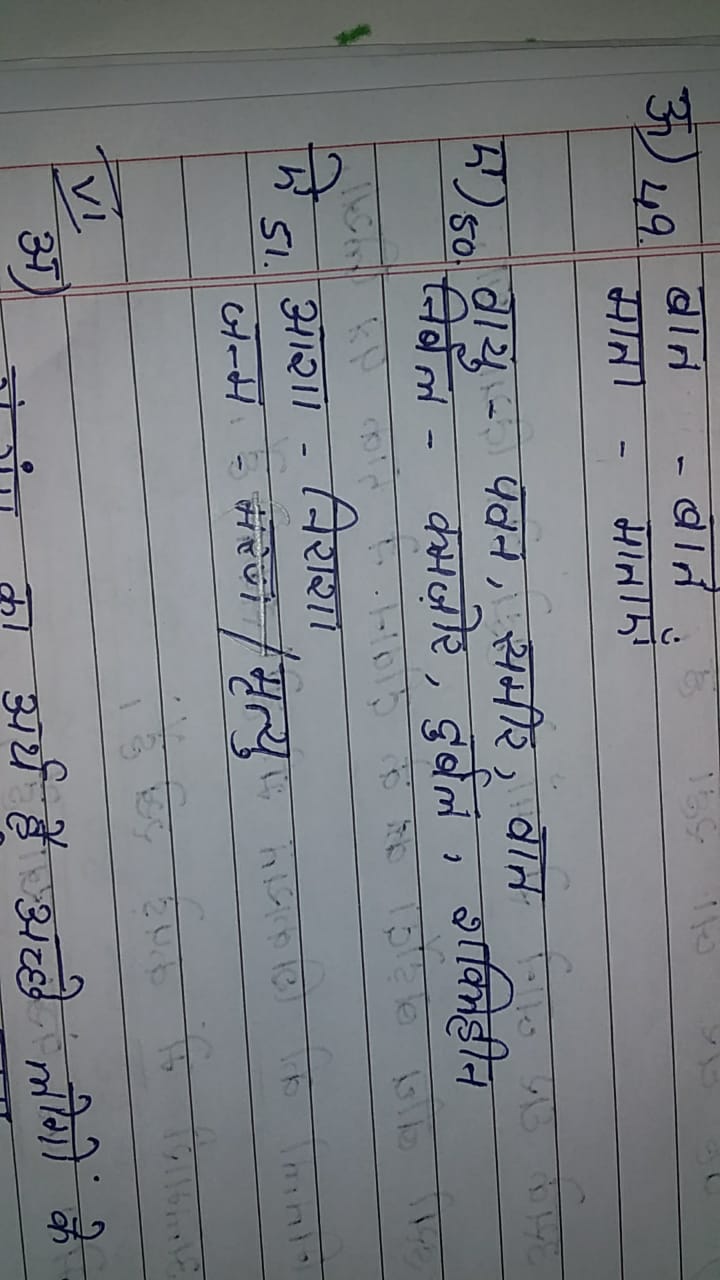 अ) 49. बात - बातें
माता - माताएं
50. वायु - पवन, समीर, वात
निर्बल - कमज़ोर, दुर्बल, शक्तिहीन
51. आशा - निराशा
जन्म - मरण / मृत्यु
VI
अ) का अर्थ है अच्छे लोगों के